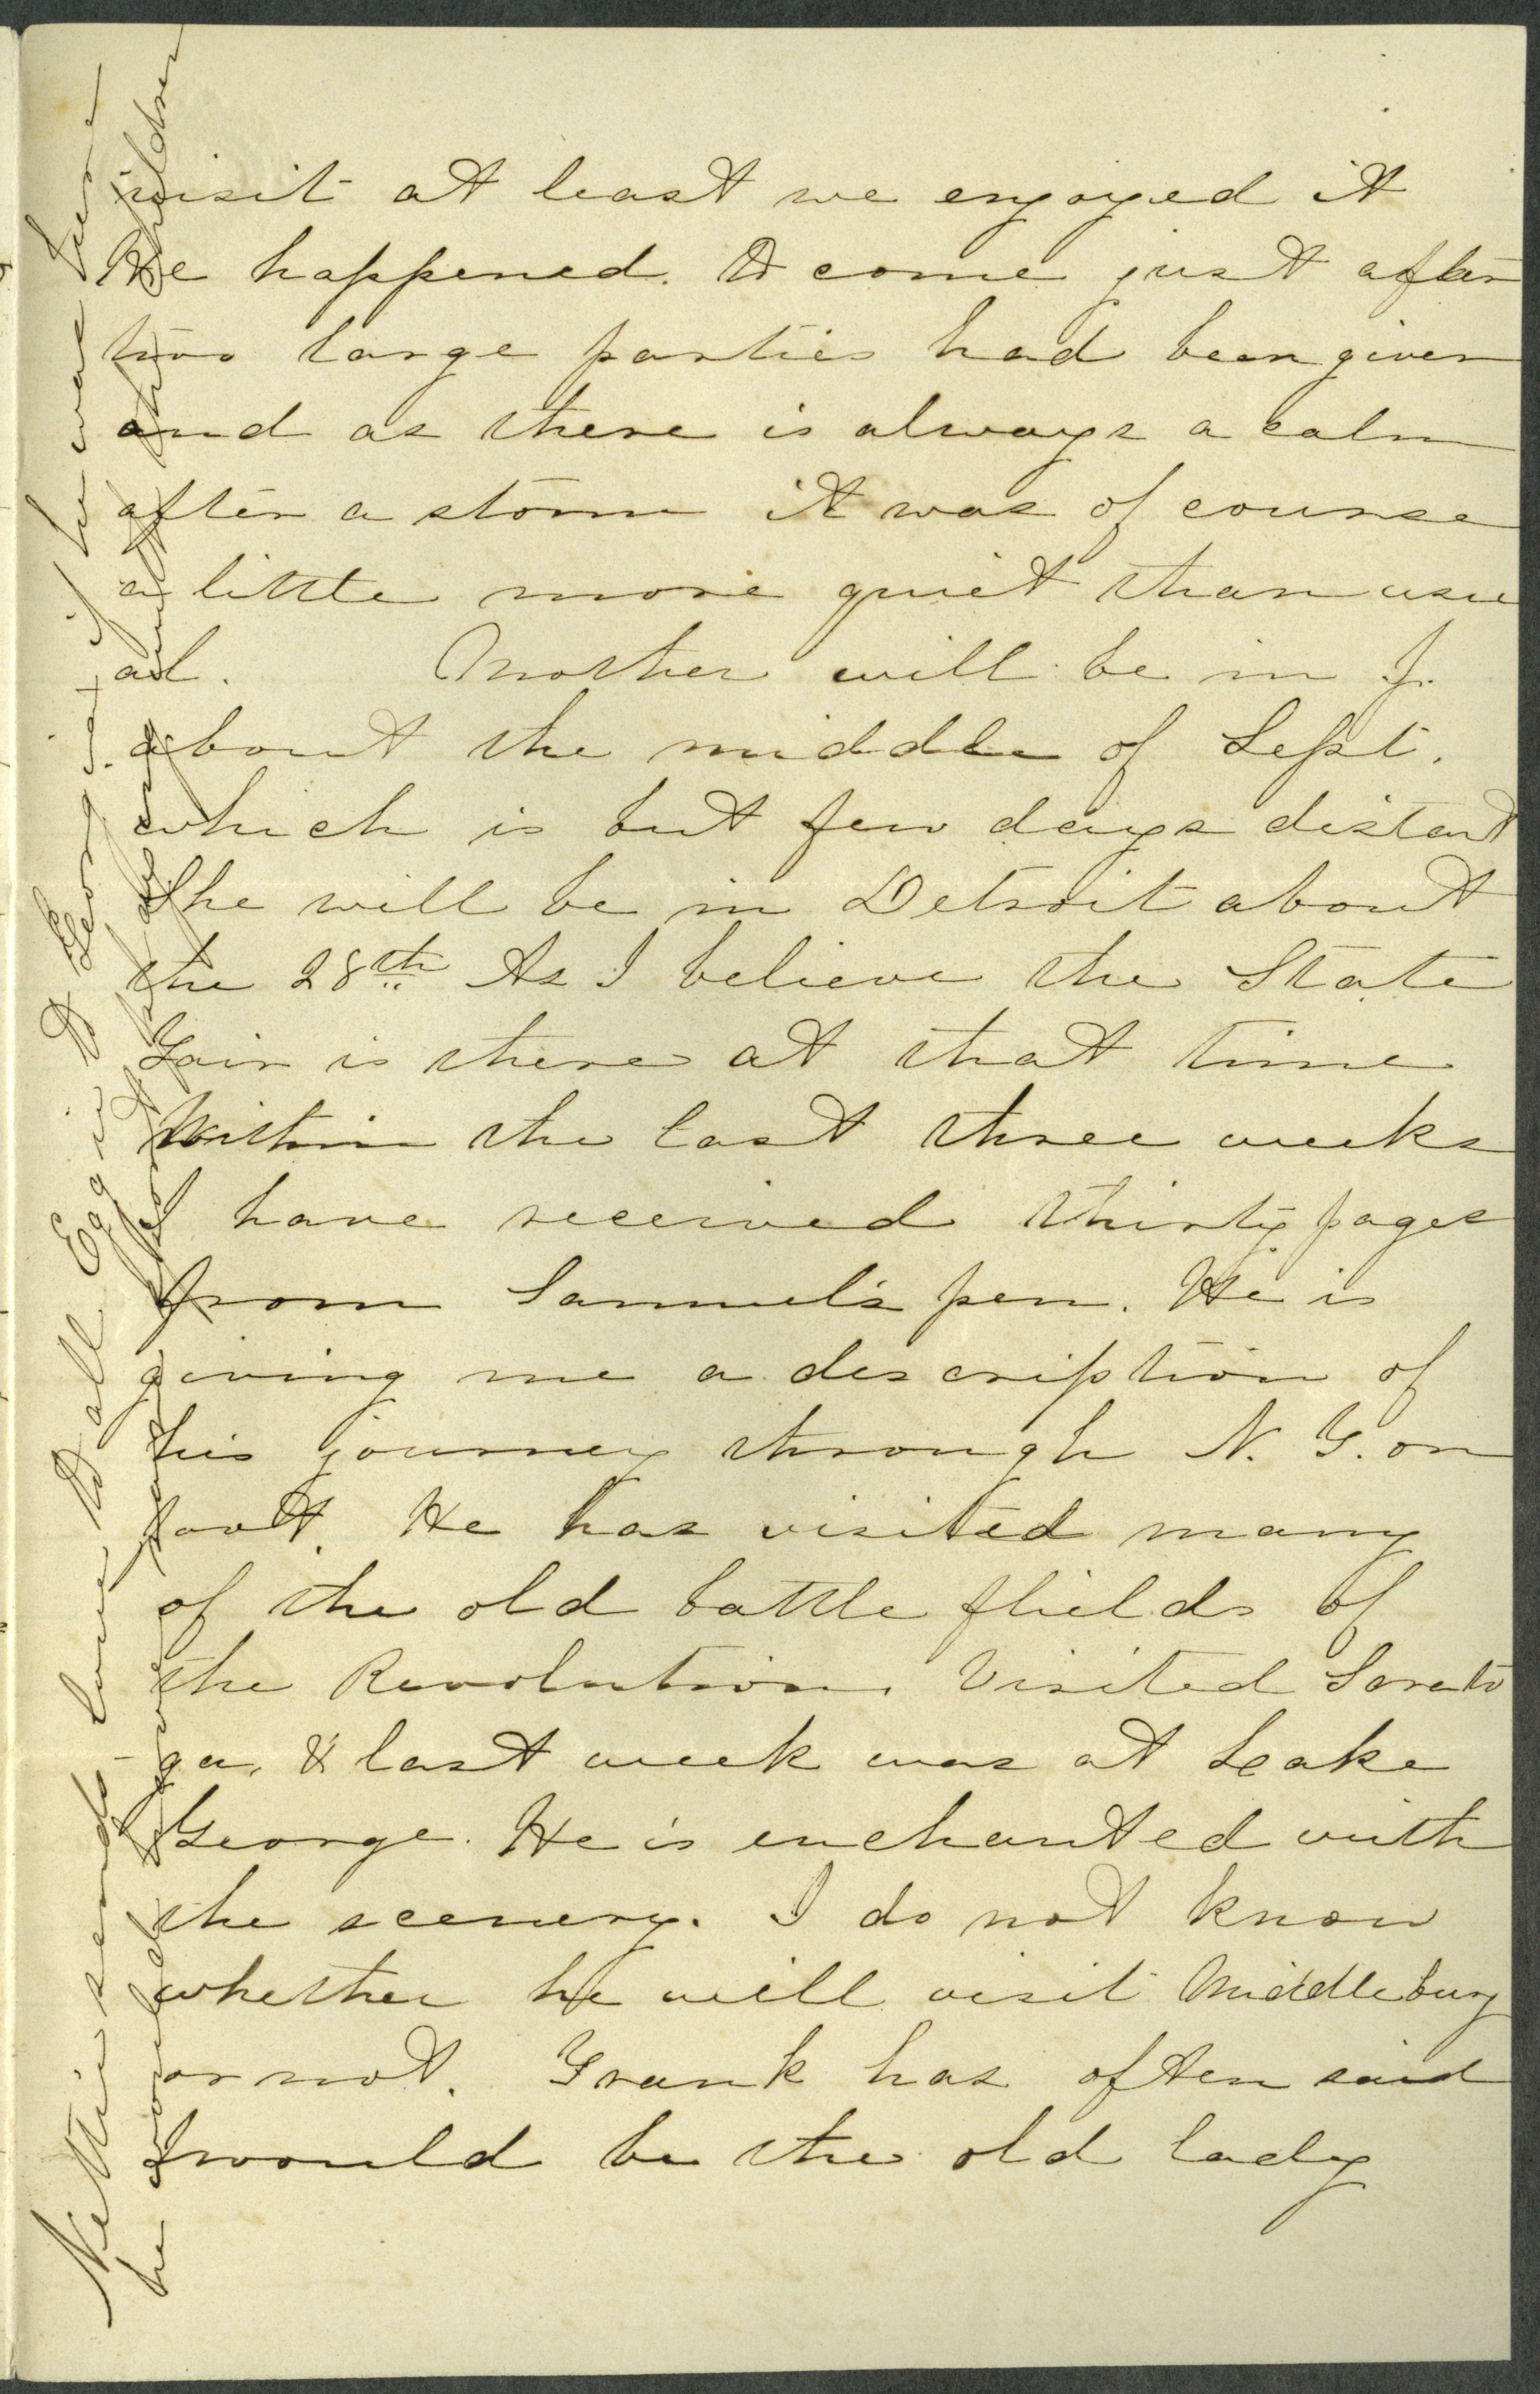 visit at least we enjoyed it
He happened to come just after
two large parties had been given
and as there is always a calm
after a storm it was of course
a little more quiet than usu
al. Mother will be in J.
about the middle of Sept.
which is but few days distant
She will be in Detroit about
the 28th As I believe the State
Fair is there at that time
Within the last three weeks
I have received thirty pages
from Samuel's pen. He is
giving me a description of
his journey through N. Y. on
foot. He has visited many
of the old battle flields of
the Revolution. Visited Sarato
ga, & last week was at Leake
George. He is enchanted with
the scenery. I do not know
whether he will visit Middlebury
or not. Frank has often said
I would be the old lady
Nettie sends love to all Eggie & Georgia, if he were here
he would